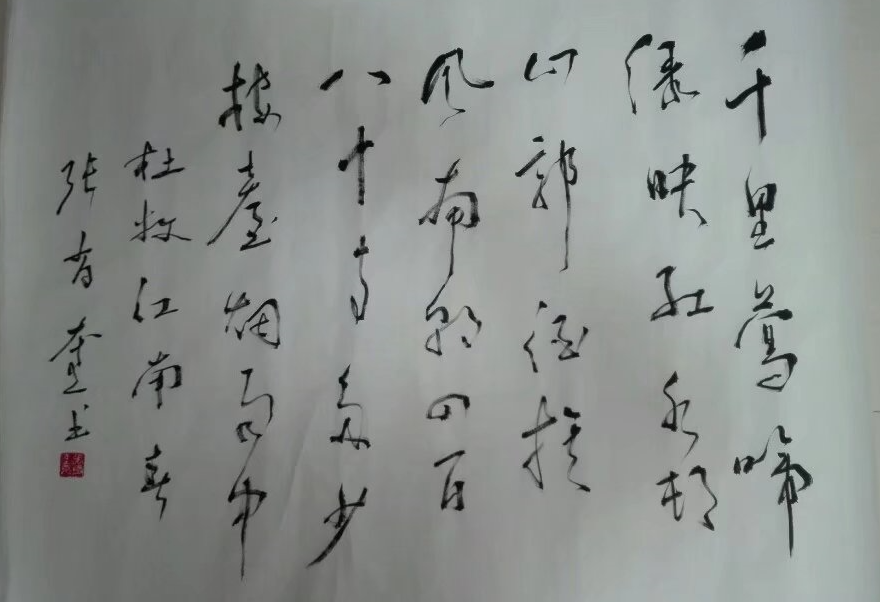 千里鶯啼
绿映红水村
山郭酒旗
风南朝四百
八十寺多少
楼臺烟雨中
杜牧江南春
张有奎书